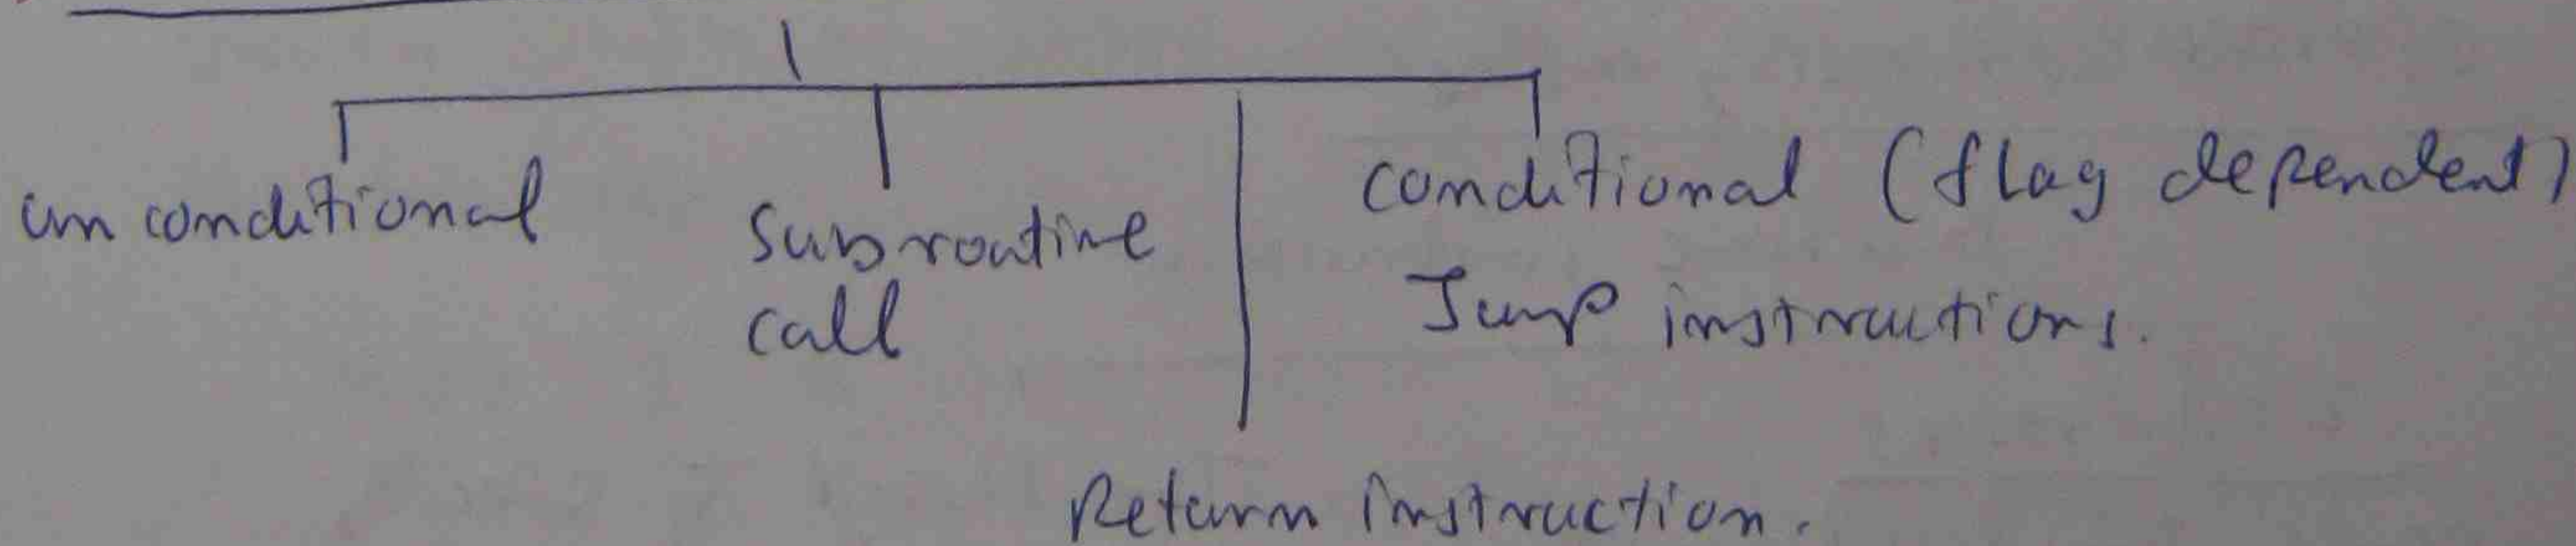 unconditional
subroutine
call
conditional (flag dependent)
Jump instructions.
Return instruction.